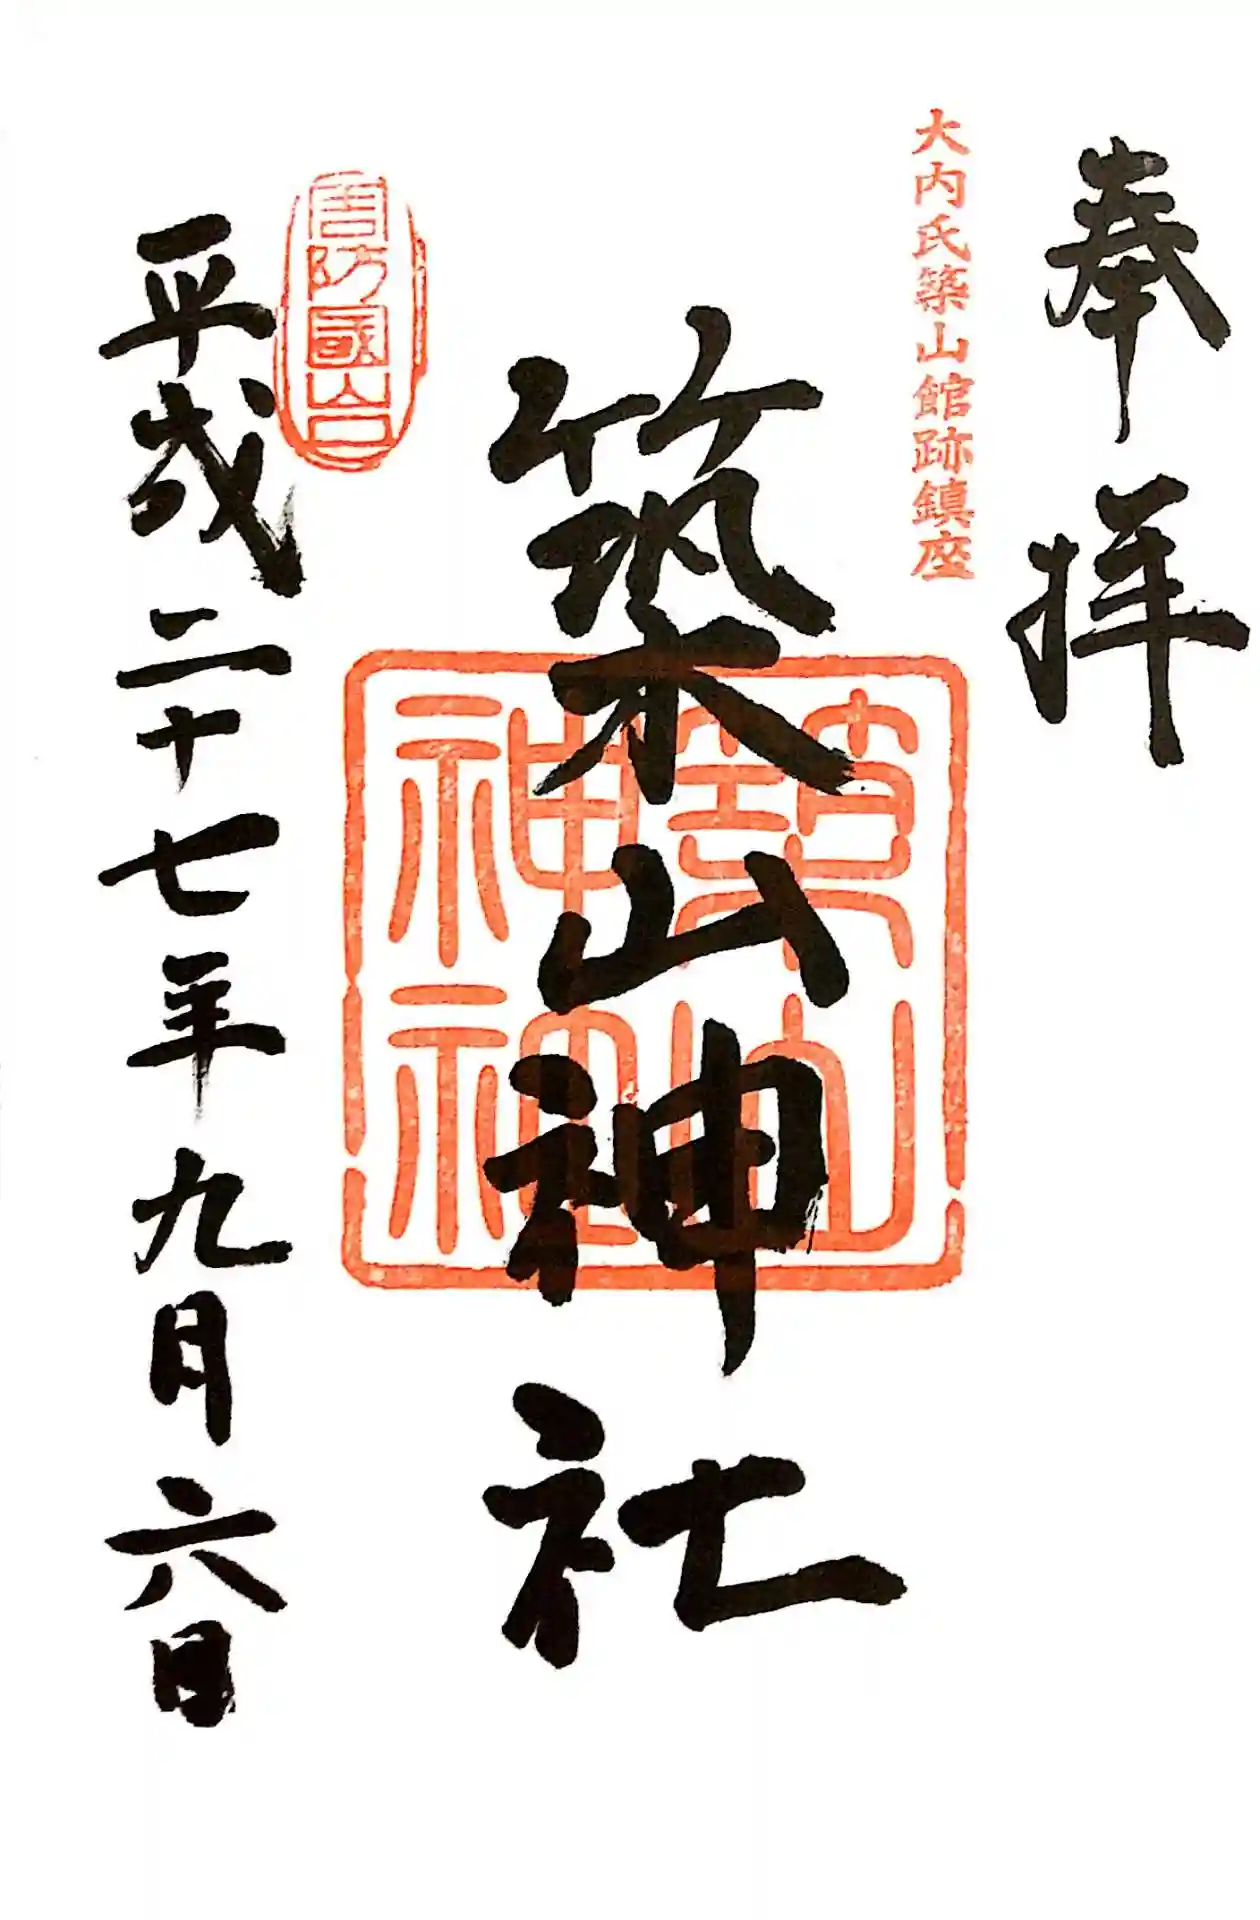 奉拝
大内氏築山館跡鎮座
築山神社
周防國山口
平成二十七年九月六日